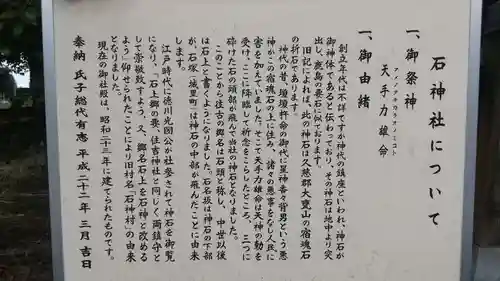 石神社について
一、御祭神
アメノタヂカラヲノミコト
天手力雄命
一、御由緒
創立年代は不詳ですが神代の鎮座といわれ、神石が
御神体であると伝わっており、その神石は地中より突
出し、鹿島の要石に似ております。
旧記によれば、此の神石は久慈郡大甕山の宿魂石
の祈石であります。
神代の昔、瓊瓊杵命の御代に星神香々背男という悪
神がこの宿魂石の上に住み、諸々の悪事をなし人民に
害を加えていました。そこで天手力雄命は天神の勅を
受け、ここに降臨して祈念をこらしたところ、三つに
砕けた石の頭部が飛んで当社の神石となりました。
このことから往古の郷名は石頭と称し、中世以後
は石上と書くようになりました。石名坂は神石の下部
が、石塚(城里町)は神石の中部が飛んだことに由来
します。
江戸時代に徳川光圀公が社参されて神石を御覧
になり、「石上郷の要、住吉神社と同じく両鎮守と
して崇敬致すよう、又、郷名石上を石神と改める
よう」仰せられたことにより旧村名「石神村」の由来
となりました。
現在の御社殿は、昭和二十三年に建てられたものです。
奉納 氏子総代有志 平成二十二年 三月吉日